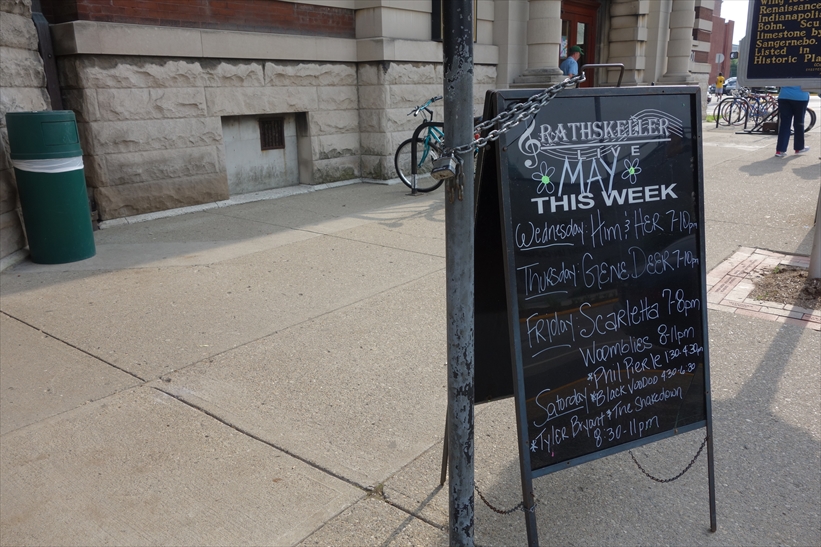 RATHSKELLER
MAY
THIS WEEK
Wednesday: Him & HER 7-10pm
Thursday: GENE DEER 7-10pm
Friday: Scarletta 7-8pm
Woomblies 8-11pm
*Phil Pierle 1:30-4:30pm
Saturday *Black Voodoo 4:30-6:30
*Tyler Bryant & The Shakedown
8:30-11pm
Renaissance
Indianapolis
Bohn. Scu
limestone by
Sangernebo.
Listed in
Historic Pla